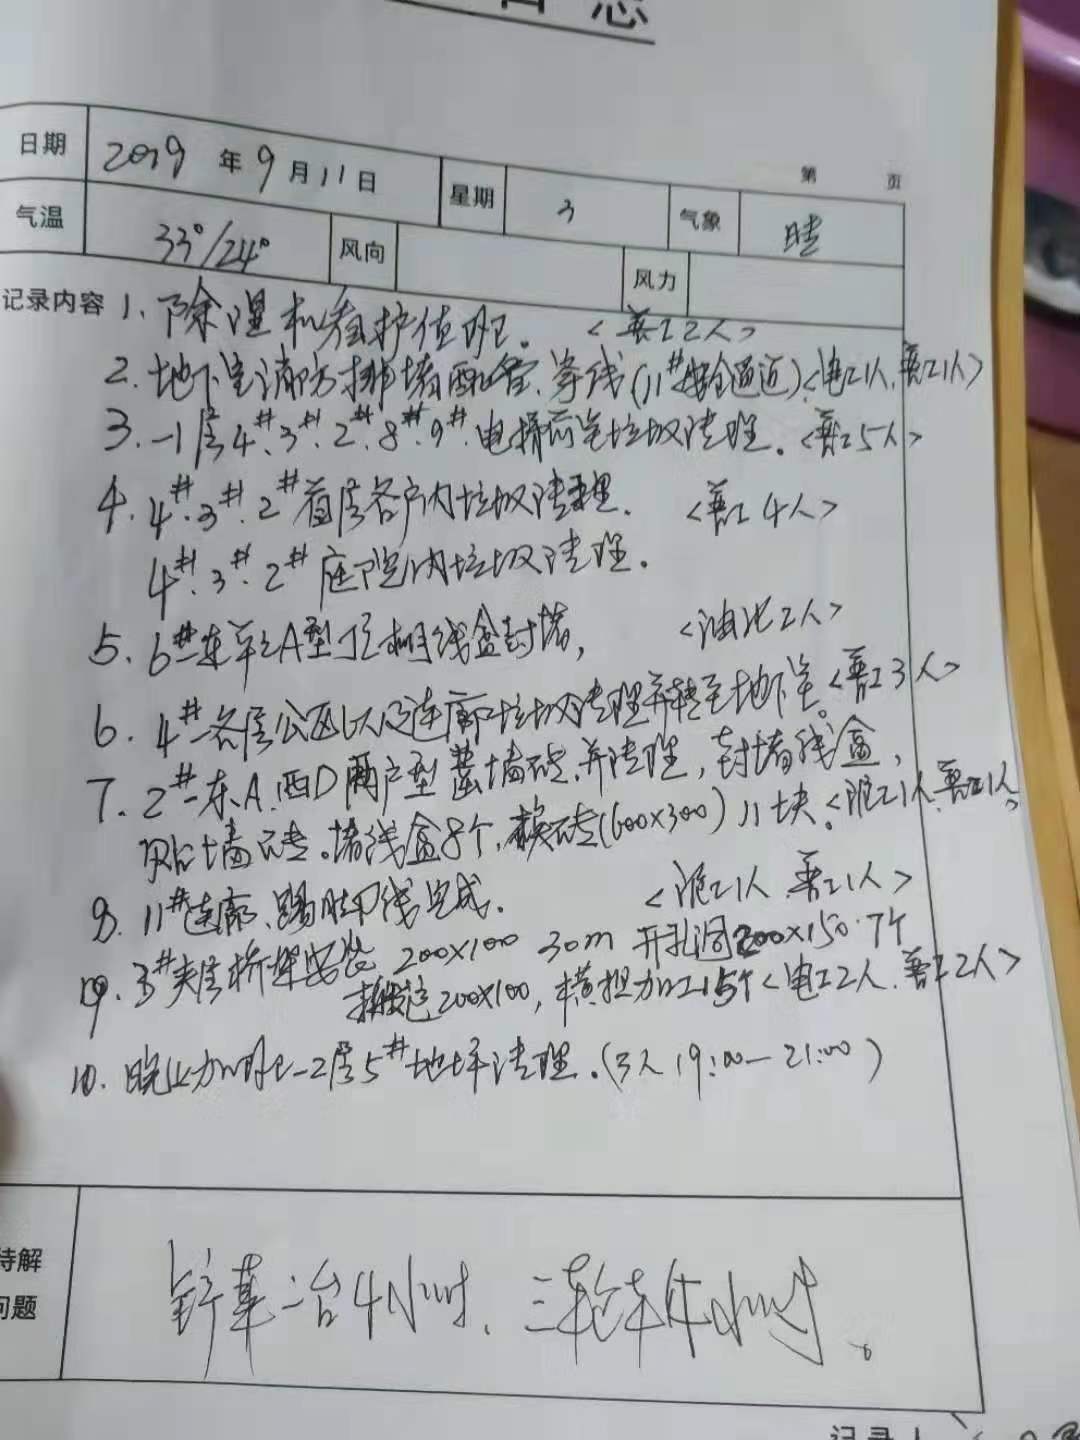 日志
第 页
日期 2019年9月11日 星期 3 气象 晴
气温 33°/24° 风向 风力
记录内容 1、除湿机看护值班。 <普工2人>
2、地下室消防排堵配管、穿线(11#安全通道)<电工1人、普工1人>
3、-1层4#、3#、2#、8#、9#、电梯前室垃圾清理。<普工5人>
4、4#、3#、2#首层各户内垃圾清理. <普工4人>
4#、3#、2#庭院内垃圾清理.
5、6#东单元A型顶棚线盒封堵, <油工2人>
6、4#各层公区以及连廊垃圾清理并转至地下室。<普工3人>
7、2#东A、西D两户型 墙砖、并清理,封堵线盒,
贴墙砖。堵线盒8个,换砖(600×300)11块。<泥工1人、普工1人>
8、11#连廊、踢脚线完成. <泥工1人、普工1人>
9、3#夹层桥架安装 200×100 30m 开孔洞200×150·7个
搬运200×100,横担加工15个<电工2人、普工2人>
10、晚上加班-2层5#地坪清理.(3人 19:00-21:00)
待解
问题
铲车一台4小时、三轮车4小时。
记录人